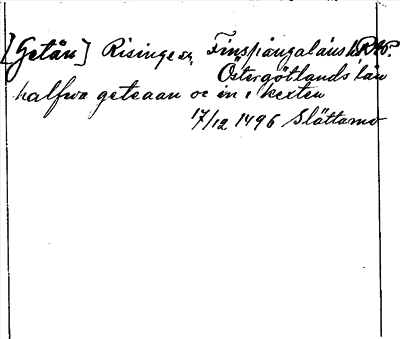 [Getån] Risinge sn Finspångaläns hd RAP.
Östergötlands län
halfwa geteaan oc in i kexten
17/12 1496 Slättamo